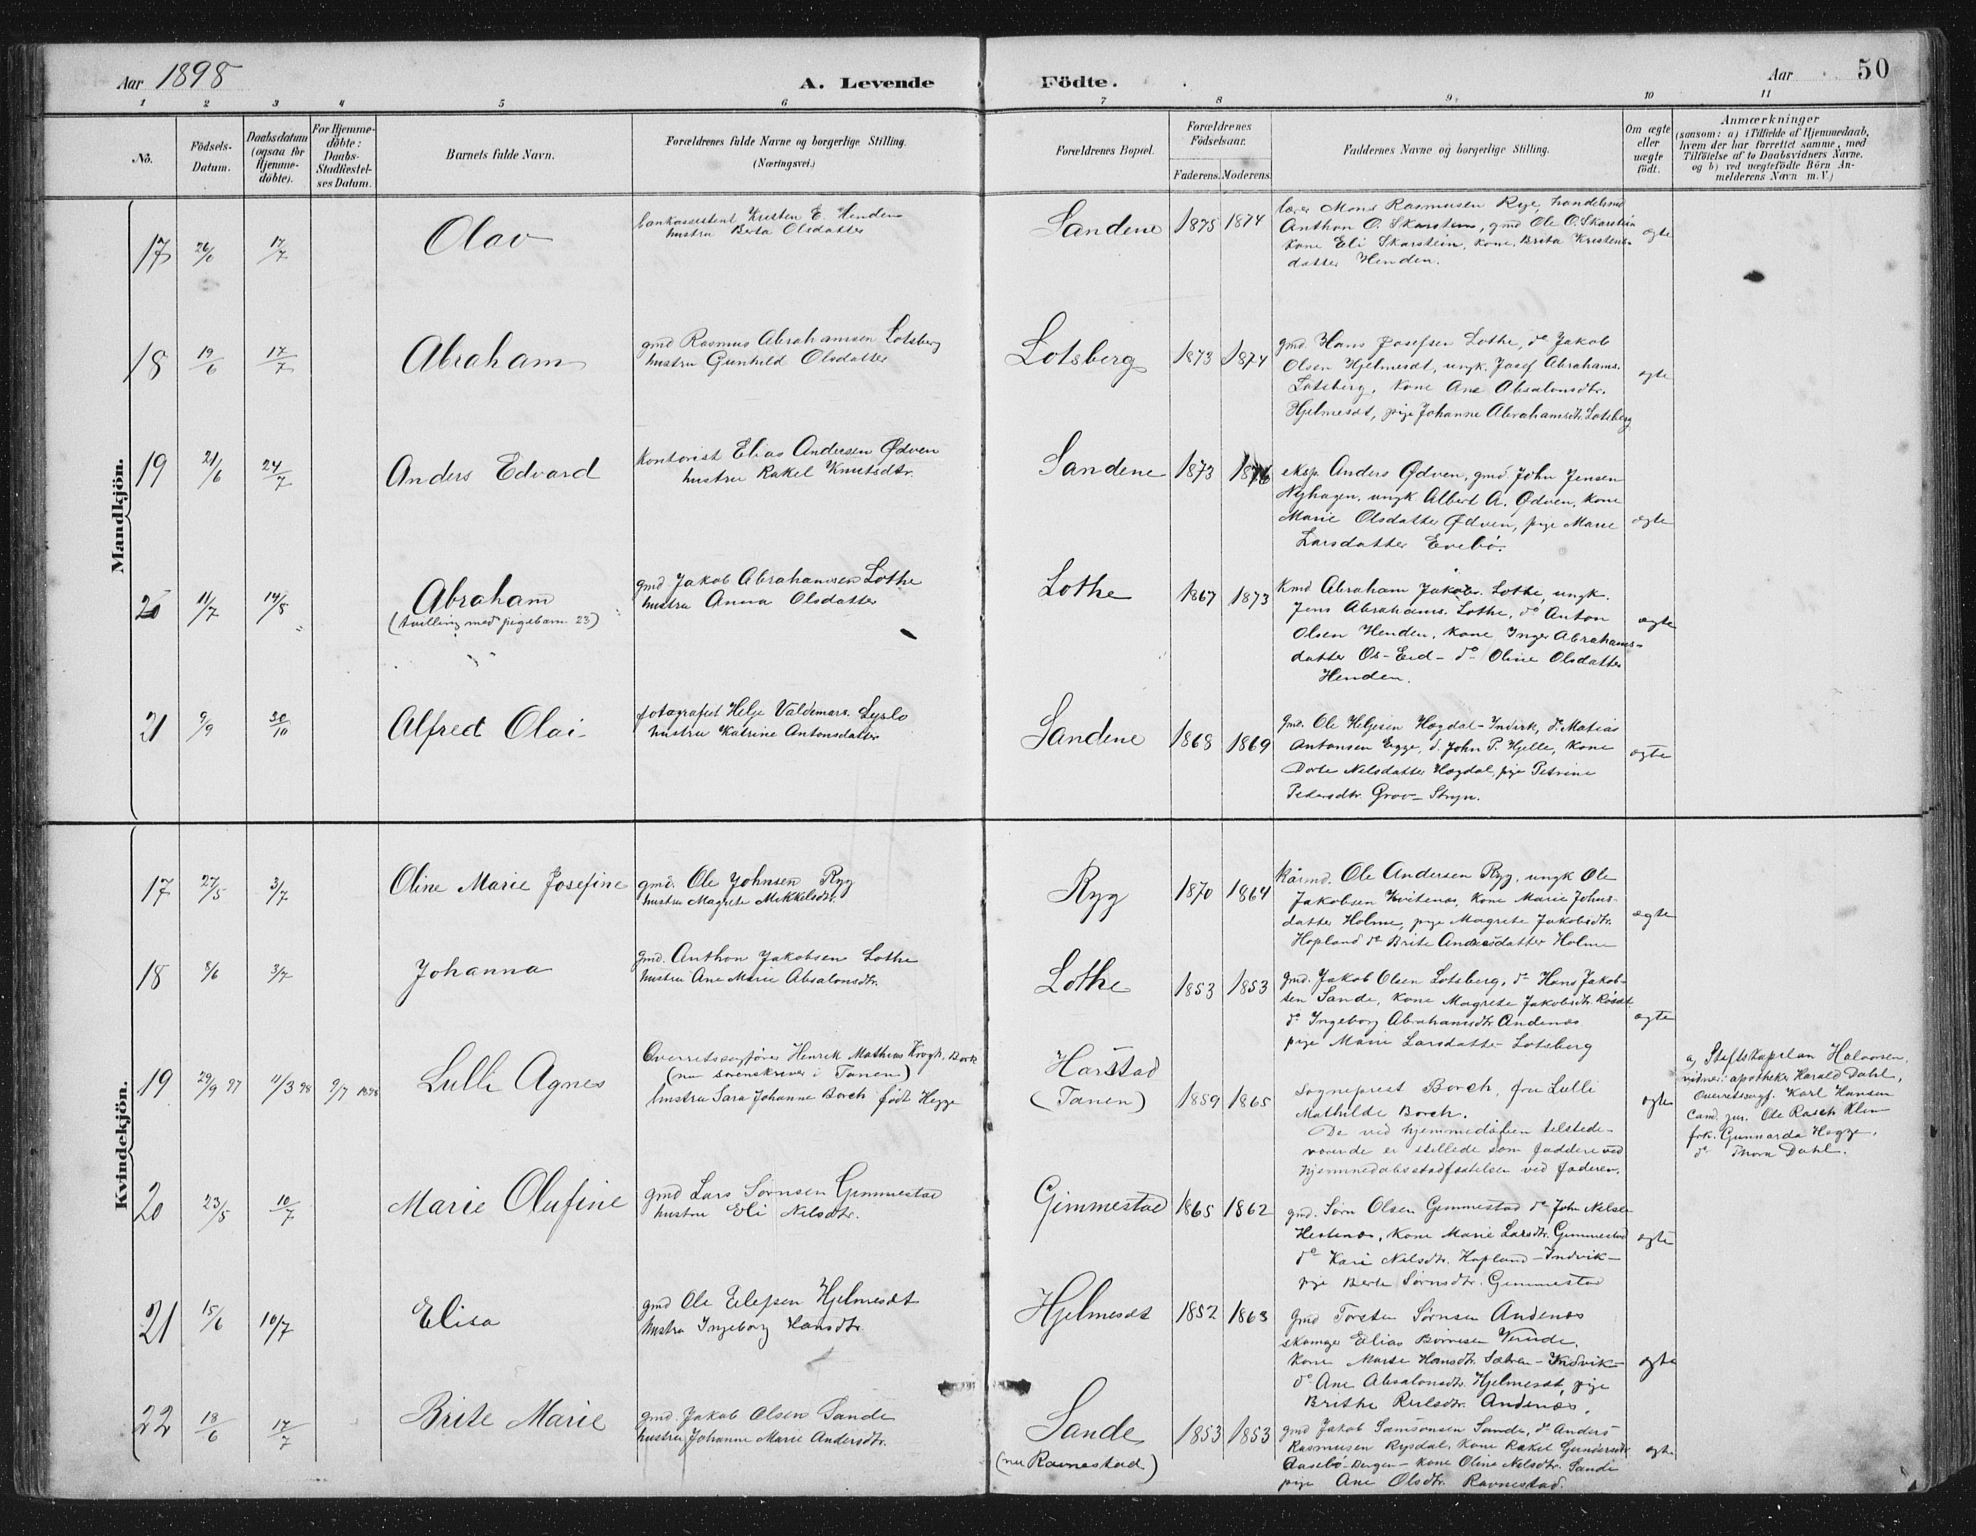 Aar 1898
A. Levende Födte.
Aar
50
1 2 3 4 5 6 7 8 9 10 11
No.
Födsels-Datum.
Daabsdatum (ogsaa for Hjemme-döbte).
For Hjemme-döbte: Daabs-Stadfæstel-ses Datum.
Barnets fulde Navn.
Forældrenes fulde Navne og borgerlige Stilling. (Næringsvei.)
Forældrenes Bopæl.
Forældrenes Födselsaar.
Faderens. Moderens.
Faddernes Navne og borgerlige Stilling.
Om ægte eller uægte födt.
Anmærkninger
(saasom: a) i Tilfælde af Hjemmedaab,
hvem der har forrettet samme, med
Tilföielse af to Daabsvidners Navne,
og b) ved uægtefödte Börn An-
melderens Navn m. V.)
Mandkjön.
17 26/6 17/7 Olav
bankassistent Kristen E. Henden
hustru Berta Olsdatter
Sandene 1875 1874
lærer Mons Rasmussen Rye, handelsmd
Anthon O. Skarstein, gmd Ole O. Skarstein
kone Eli Skarstein, kone Brita Kristens-
datter Henden.
ægte
18 19/6 17/7 Abraham
gmd Rasmus Abrahamsen Lotsberg
hustru Gunhild Olsdatter
Lotsberg 1873 1874
gmd. Hans Josefsen Lothe, do Jakob
Olsen Hjelmesæt, ungk. Josef Abrahams.
Lotsberg, kone Ane Absalonsdtr.
Hjelmesæt, pige Johanne Abrahamsdtr. Lotsberg
ægte
19 21/6 24/7 Anders Edvard
kontorist Elias Andersen Ødven
hustru Rakel Knutsdtr.
Sandene 1873 1876
eksp. Anders Ødven, gmd John Jensen
Nyhagen, ungk Albert A. Ødven, kone
Marie Olsdatter Ødven, pige Marie
Larsdatter Evebö.
ægte
20 11/7 14/8 Abraham
(tvilling med pigebarn 23)
gmd Jakob Abrahamsen Lothe
hustru Anna Olsdatter
Lothe 1867 1873
Kmd Abraham Jakobs. Lothe, ungk.
Jens Abrahams. Lothe, do Anton
Olsen Henden, kone Inger Abrahams-
datter Os-Eid- do Oline Olsdatter
Henden.
ægte
21 9/9 30/10 Alfred Olai
fotografist Helje Valdemars. Lyslo
hustru Katrine Antonsdatter
Sandene 1868 1869
gmd. Ole Heljesen Hægdal-Indvik, do Matias
Antonsen Egge, d. John P. Hjelle, kone
Dorte Nilsdatter Hægdal, pige Petrine
Pedersdtr. Grov-Stryn.
ægte
Kvindekjön.
17 27/5 3/7 Oline Marie Josefine
gmd. Ole Johnsen Ryg
hustru Magrete Mikkelsdtr.
Ryg 1870 1864
Kårmd. Ole Andersen Ryg, ungk Ole
Jakobsen Kvitenæs, kone Marie Johns-
datter Holme, pige Magrete Jakobsdtr.
Hopland do Brite Andersdatter Holme
ægte
18 8/6 3/7 Johanna
gmd. Anthon Jakobsen Lothe
hustru Ane Marie Absalonsdtr.
Lothe 1853 1853
gmd. Jakob Olsen Lotsberg, do Hans Jakob-
sen Sande, kone Magrete Jakobsdtr. Røset
do Ingeborg Abrahamsdtr. Andenæs
pige Marie Larsdatter Lotsberg
ægte
19 29/9 97 11/3 98 9/7 1898 Lulli Agnes
Overretssagfører Henrik Mathias Krogh Borch
(nu sorenskriver i Tanen)
hustru Sara Johanne Borch født Hegge
Harstad
(Tanen) 1859 1865
Sogneprest Borch, fru Lulli
Mathilde Borch.
De ved hjemmedåben tilstede-
værende er stillede som faddere ved
hjemmedåbsstadfæstelsen ved faderen.
ægte
a) Stiftskapelan Halvorsen,
vitnei: apotheker Harald Dahl,
Overretssagf. Karl Hansen
Cand. jur. Ole Rasch Klem
frk. Gunnarda Hegge,
do Thora Dahl.
20 23/5 10/7 Marie Olufine
gmd Lars Sørnsen Gimmestad
hustru Eli Nilsdtr.
Gimmestad 1865 1862
gmd. Sørn Olsen Gimmestad do John Nilsen
Hestenæs, kone Marie Larsdtr. Gimmestad
do Kari Nilsdtr. Hopland-Indvik-
pige Berte Sørnsdtr. Gimmestad
ægte
21 15/6 10/7 Elisa
gmd Ole Eilefsen Hjelmesæt
hustru Ingeborg Hansdtr.
Hjelmesæt 1852 1863
gmd Torsten Sørnsen Andenæs
skomager Elias
kone Marte Hansdtr. Sætren-Indvik-
do Ane Absalonsdtr. Hjelmesæt, pige
Brithe Andenæs.
ægte
22 18/6 17/7 Brite Marie
gmd. Jakob Olsen Sande
hustru Johanne Marie Andersdtr.
Sande
(nu Ravnestad) 1853 1853
gmd Jakob Samsonsen Sande, do Anders
Rasmusen Rysdal, kone Rakel Gundersdtr.
Aasebö-Bergen- kone Oline Nilsdtr. Sande
pige Ane Olsdtr. Ravnestad.
ægte